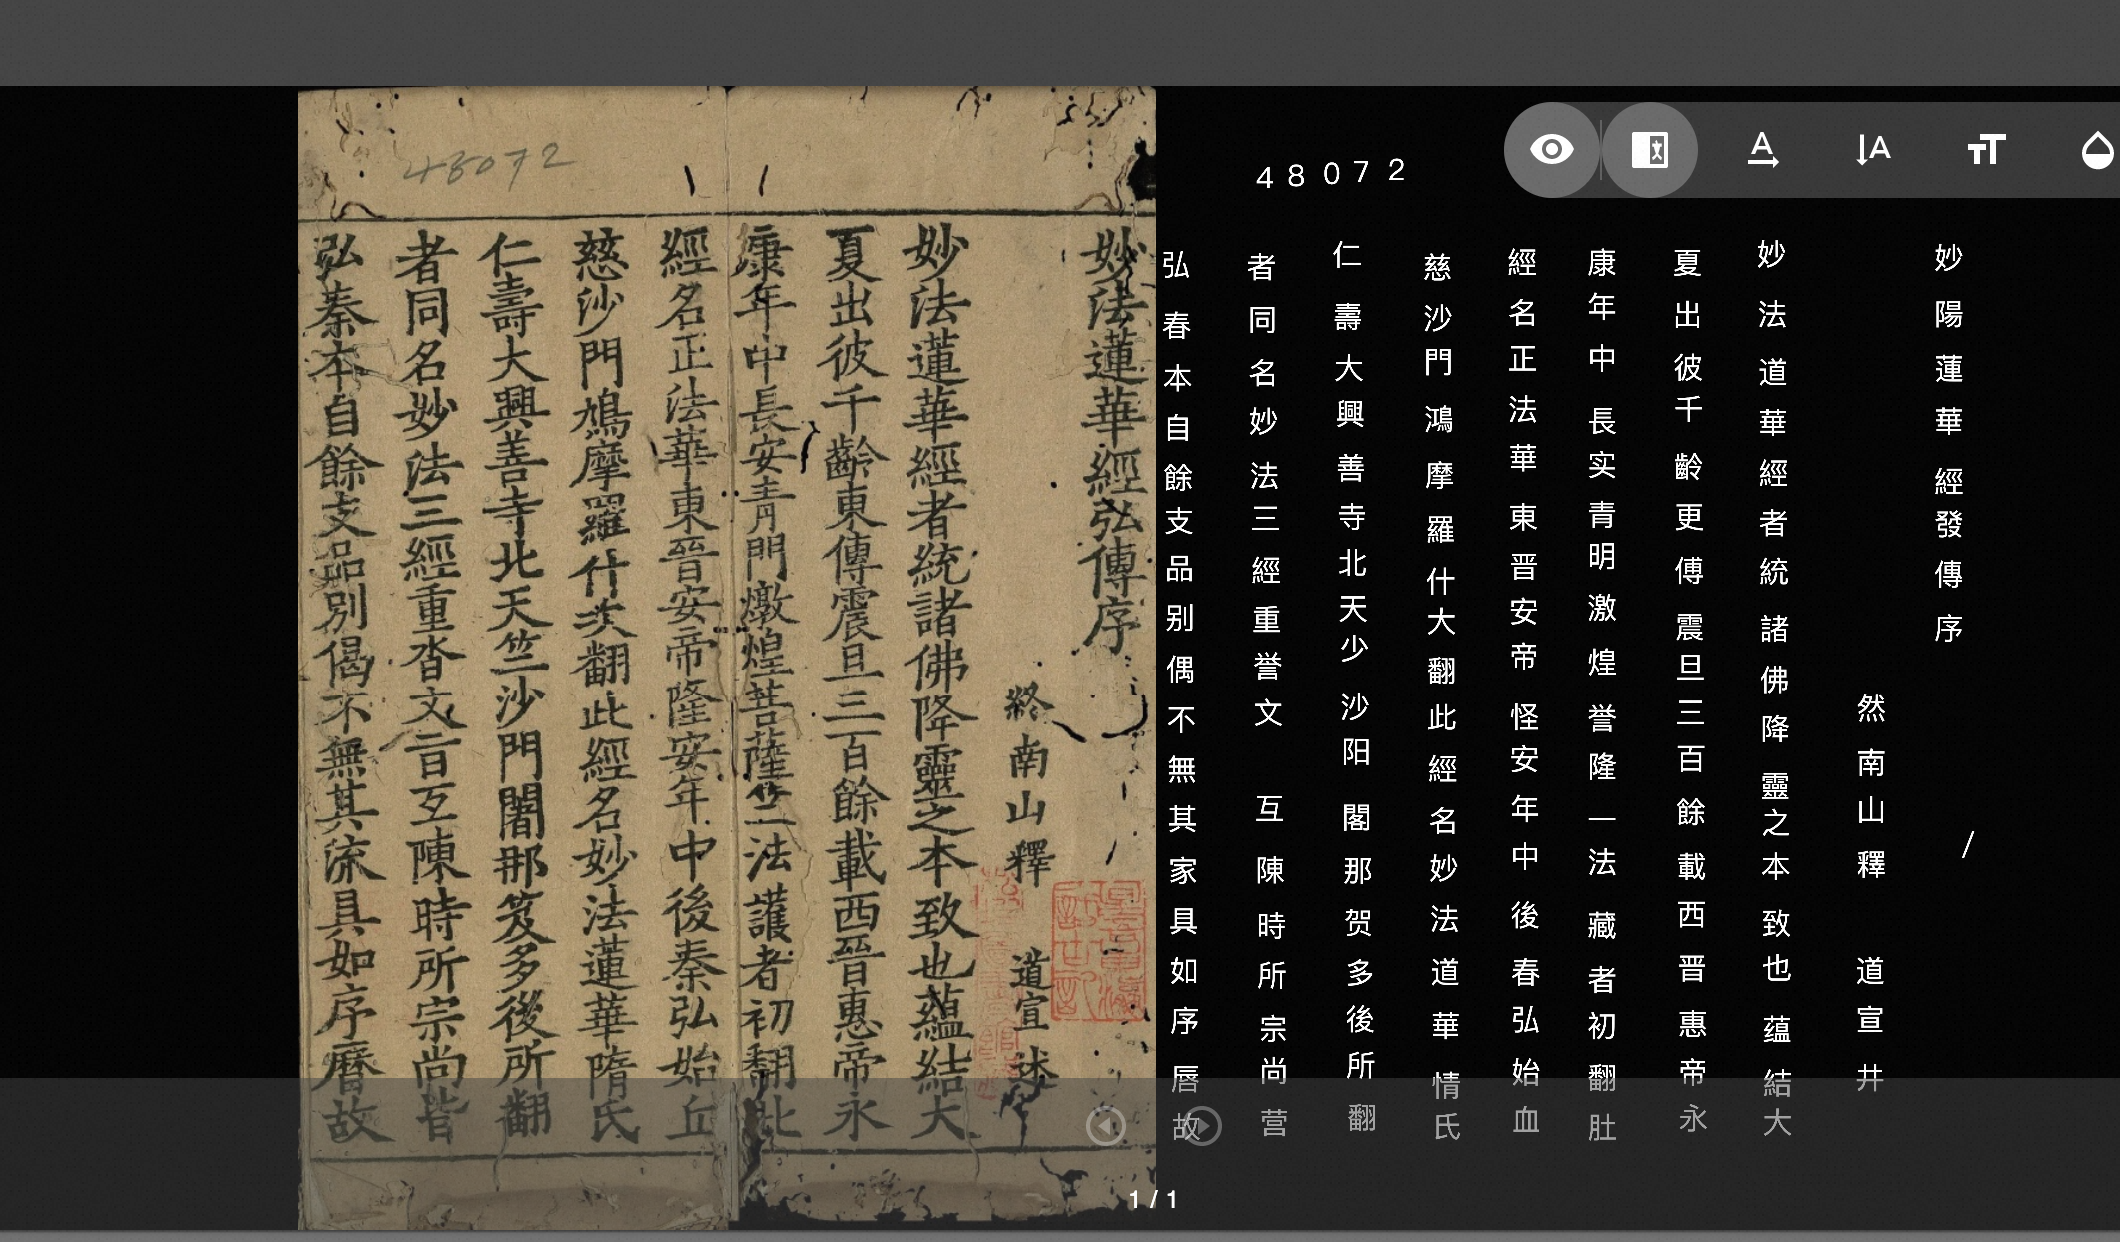 48072
妙法蓮華經弘傳序
終南山釋 道宣述
妙法蓮華經者統諸佛降靈之本致也蘊結大
夏出彼千齡東傳震旦三百餘載西晉惠帝永
康年中長安青門燉煌菩薩竺法護者初翻此
經名正法華東晉安帝隆安年中後秦弘始丘
慈沙門鳩摩羅什次翻此經名妙法蓮華隋氏
仁壽大興善寺北天竺沙門闍那笈多後所翻
者同名妙法三經重沓文旨互陳時所宗尚皆
弘秦本自餘支品別偈不無其流具如序曆故
48072
妙陽蓮華經發傳序
/
然南山釋 道宣井
妙法道華經者統諸佛降靈之本致也蕴結大
夏出彼千齡更傅震旦三百餘載西晋惠帝永
康年中長实青明激煌誉隆一法藏者初翻肚
經名正法華東晋安帝怪安年中後春弘始血
慈沙門鴻摩羅什大翻此經名妙法道華情氏
仁壽大興善寺北天少沙阳閣那贺多後所翻
者同名妙法三經重誉文 互陳時所宗尚营
弘春本自餘支品别偶不無其家具如序唇故
1 / 1